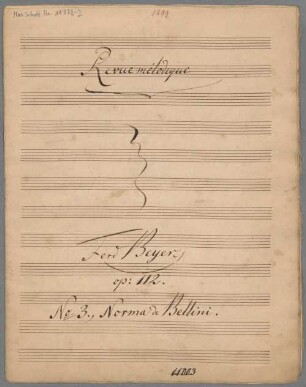 Mus. Schott Ha 11 272-2
Revue mélodique
Ferd Beyer,
op: 112.
No 3., Norma de Bellini.